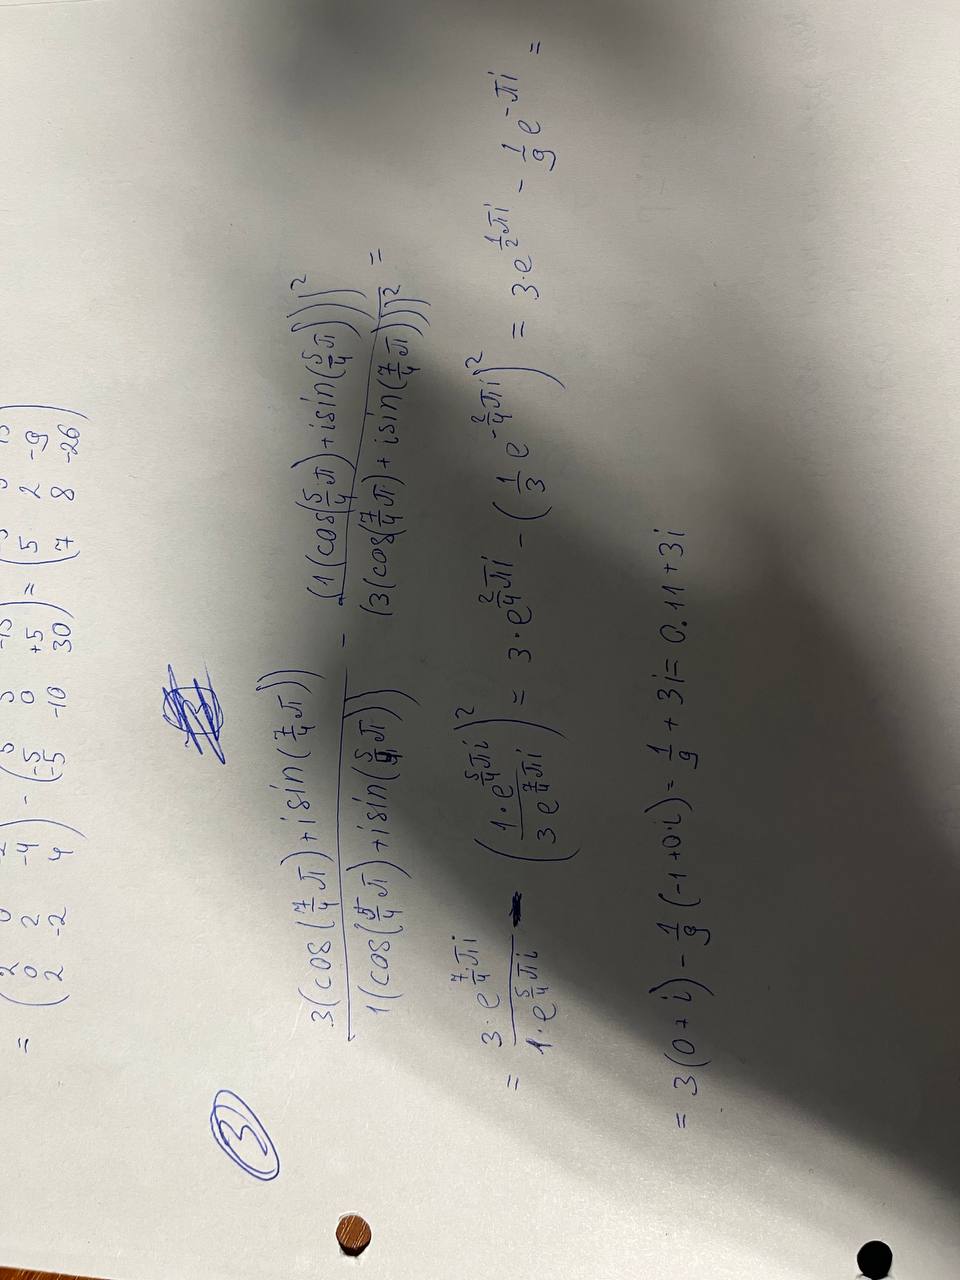 = (2 0 -2 / 0 2 -4 / 2 -2 4) - (5 5 -15 / -5 0 +5 / -5 -10 30) = (-3 / 5 2 -9 / 7 8 -26)
③
3(cos(7/4 π) + isin(7/4 π)) / 1(cos(5/4 π) + isin(5/4 π)) - (1(cos(5/4 π) + isin(5/4 π)))² / (3(cos(7/4 π) + isin(7/4 π)))² =
= 3·e^(7/4 πi) / 1·e^(5/4 πi) - (1·e^(5/4 πi) / 3e^(7/4 πi))² = 3·e^(2/4 πi) - (1/3 e^(-2/4 πi))² = 3·e^(1/2 πi) - 1/9 e^(-πi) =
= 3(0+i) - 1/9 (-1+0·i) = 1/9 + 3i = 0.11+3i